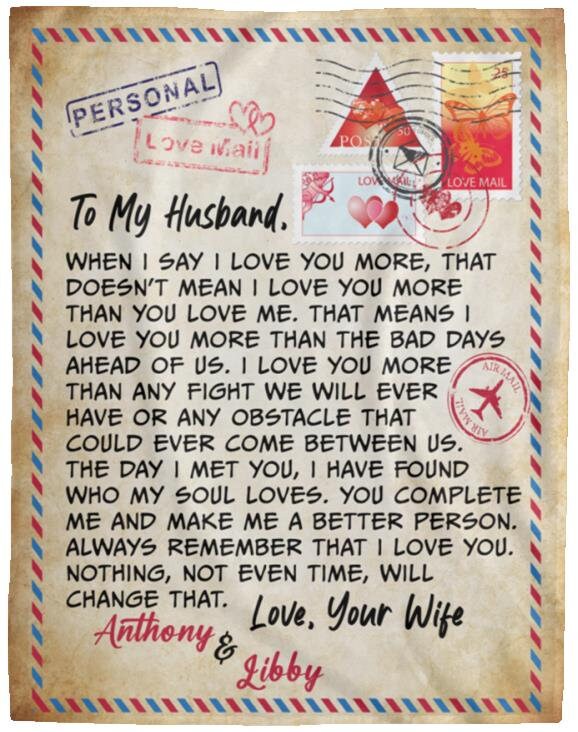 PERSONAL
Love Mail
POST
50
25
LOVE MAIL
LOVE MAIL
To My Husband,
WHEN I SAY I LOVE YOU MORE, THAT
DOESN'T MEAN I LOVE YOU MORE
THAN YOU LOVE ME. THAT MEANS I
LOVE YOU MORE THAN THE BAD DAYS
AHEAD OF US. I LOVE YOU MORE
THAN ANY FIGHT WE WILL EVER
HAVE OR ANY OBSTACLE THAT
COULD EVER COME BETWEEN US.
THE DAY I MET YOU, I HAVE FOUND
WHO MY SOUL LOVES. YOU COMPLETE
ME AND MAKE ME A BETTER PERSON.
ALWAYS REMEMBER THAT I LOVE YOU.
NOTHING, NOT EVEN TIME, WILL
CHANGE THAT.
AIR MAIL
AIR MAIL
Love, Your Wife
Anthony
&
Libby